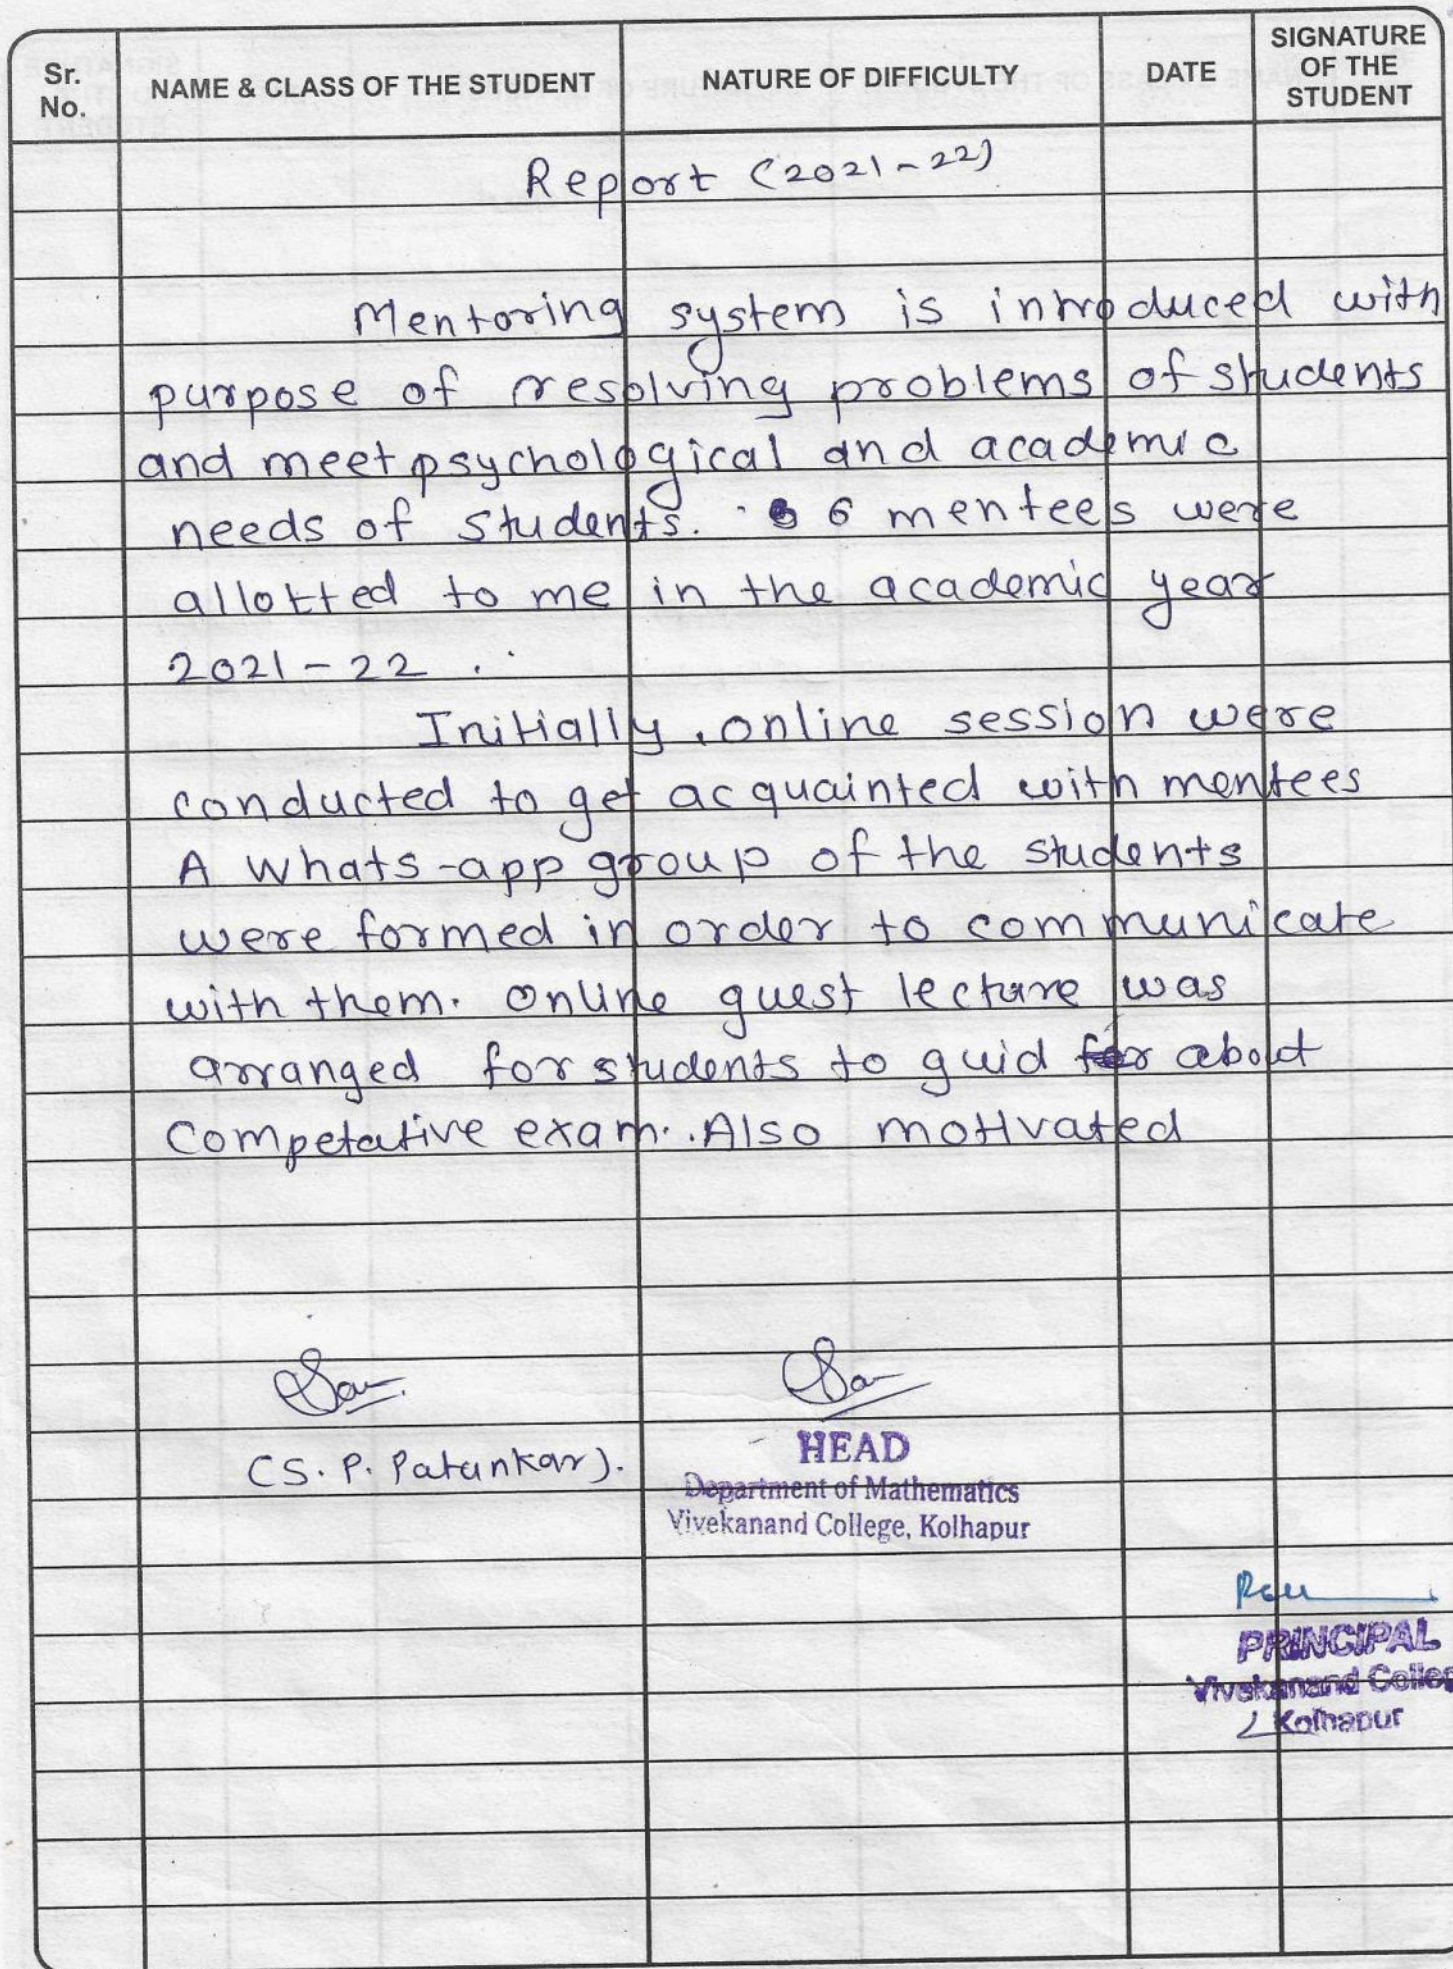 Sr. No.
NAME & CLASS OF THE STUDENT
NATURE OF DIFFICULTY
DATE
SIGNATURE OF THE STUDENT
Report (2021-22)
Mentoring system is introduced with
purpose of resolving problems of students
and meet psychological and academic
needs of students. 6 mentees were
allotted to me in the academic year
2021-22.
Initially, online session were
conducted to get acquainted with mentees
A Whats-app group of the students
were formed in order to communicate
with them. Online guest lecture was
arranged for students to guid for about
Competative exam. Also motivated
(S. P. Patankar).
HEAD
Department of Mathematics
Vivekanand College, Kolhapur
PRINCIPAL
Vivekanand Colleg
Kolhapur